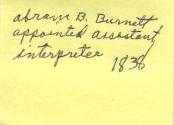 Abram B. Burnett
appointed assistant
interpreter 1838